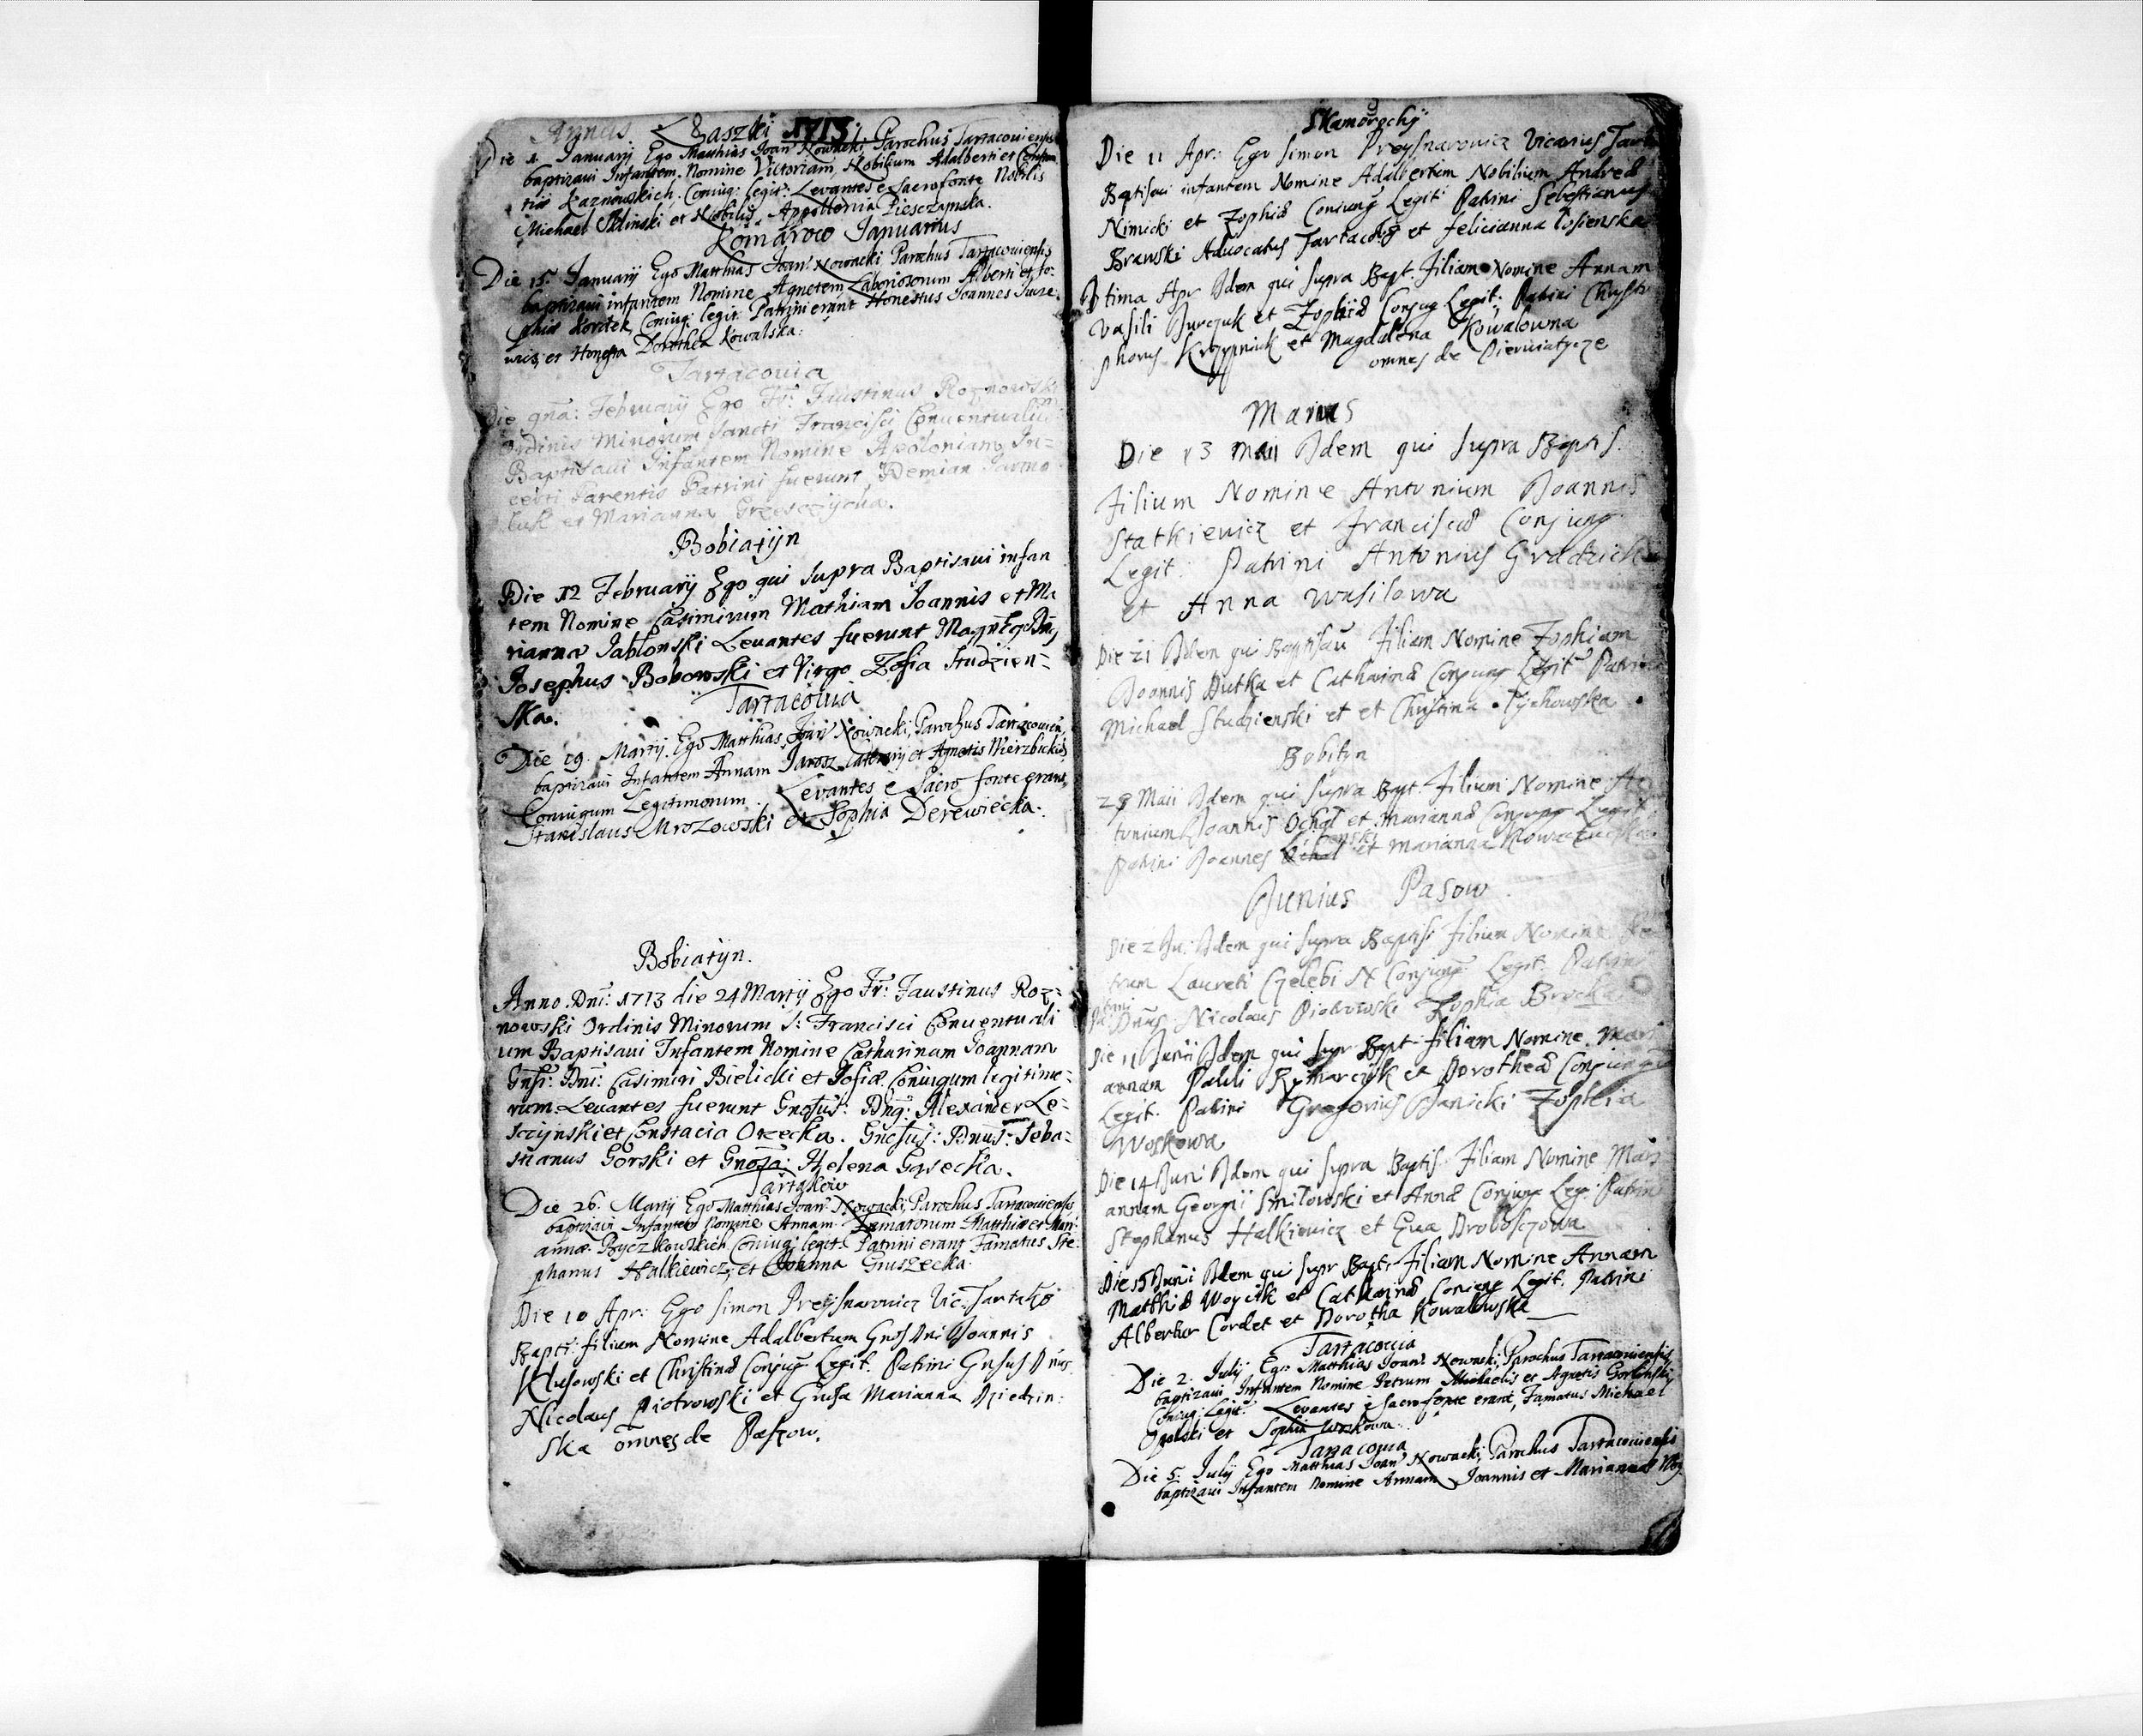 Annus Łaszki 1713
Die 1. Januarij Ego Matthias Joan: Nowacki, Parochus Tartacouiensis
baptizaui Infantem Nomine Victoriam, Nobilium Adalberti et
Kaznowskich. Coniug: legit: Levantes è Sacro fonte Nobilis
Michael et Nobilis Appollonia Piesczynska.
Komarow Januarius
Die 15. Januarij Ego Matthias Joan: Nowacki Parochus Tartacouiensis
baptizaui infantem Nomine Agnetem Laboriosorum Alberti et So-
phiæ Kordek, Coniug: legit: Patrini erant Honestus Joannes
et Honesta Dorothea Kowalska.
Tartacouia
Die 9na: February Ego Fr: Faustinus Roznowski
Ordinis Minorum Sancti Francisci Conuentualium
Baptisaui Infantem Nomine Apoloniam In-
certi Parentis Patrini fuerunt Demian
et Marianna Grzesczycha.
Bobiatijn
Die 12 February Ego qui supra Baptisaui infan
tem Nomine Casimirum Mathiam Joannis et Ma
riannæ Jablonski Leuantes fuerunt
Josephus Bobowski et Virgo Zofia Studzien-
ska.
Tartacouia
Die 19. Martij. Ego Matthias Joan: Nowacki, Parochus Tartacouien:
baptizaui Infantem Annam et Agnetis Wierzbickie
Coniugum Legitimorum. Levantes è Sacro fonte erant,
Stanislaus Mrozowski et Sophia Derewiecka.
Bobiatijn.
Anno Dni: 1713 die 24 Martij Ego Fr: Faustinus Roz-
nowski Ordinis Minorum S: Francisci Conuentuali
um Baptisaui Infantem Nomine Catharinam Joannam
Gnsi: Dni: Casimiri Bielicki et Zofiæ Coniugum legitimo-
rum Leuantes fuerunt Gnosus: Dnus: Alexander Le-
sczijnski et Constacia Orzecka. Gnosus: Dnus: Seba-
stianus Gorski et Gnosa: Helena Gąsecka.
Tartakow
Die 26. Martij Ego Matthias Joan: Nowacki, Parochus Tartacouiensis,
baptizaui Infantem Nomine Annam. Famatorum Matthiæ et Mari
annæ Byczkowskich Coniug: legit: Patrini erant Famatus Ste-
phanus Halkiewicz, et Joanna Gruszecka.
Die 10 Apr: Ego Simon Preysnarowicz Vic: Tartako
Bapti: filium Nomine Adalbertum Gnos Dni Joannis
Klusowski et Christinæ Conjug Legit: Patrini Gnsus Dnus
Nicolaus Piotrowski et Gnosa Marianna Dziedzin
ska omnes de Paszow.
Skamorochij
Die 11 Apr: Ego Simon Preysnarowicz Vicarius
Bptisaui infantem Nomine Adalbertum Nobilium Andreæ
Nimicki et Zophiæ Coniung Legiti Patrini Sebestianus
Brawski Aduocatus et felicianna Losienska
Apr Idem qui supra Bapt. Filiam Nomine Annam
Vasili Jurczuk et Zophiæ Conjug Legit: Patrini Christo
phorus et Magdalena Kowalowna
omnes de Pierwiatycze
Maius
Die 13 Maii Idem qui supra Baptis.
Filium Nomine Antonium Joannis
Statkiewicz et Franciscæ Conjung
Legit: Patrini Antonius Gradzicki
et Anna Wasilowa
Die 21 Idem qui Baptisau Filiam Nomine Zophiam
Joannis Dutka et Catharinæ Conjung Legit Patrini
Michael Studzienski et et Christina Tychowska
Bobityn
29 Maii Idem qui supra Bapt. Filium Nomine An
tonium Joannis Ochal et Mariannæ Conjung Legit
Patrini Joannes et Marianna
Junius Pasow
Die 2 Ju: Idem qui supra Baptisi Filium Nomine Pe
trum Laureti Czelebi N Conjung Legit. Patrini
Dnus: Nicolaus Piotrowski Zophia
Die 11 Junii Idem qui supr Bapt. Filiam Nomine Mari
annam Pauli Rymarczyk et Dorotheæ Conjung
Legit. Patrini Gregorius Janicki Zophia
Woskowa
Die 14 Juni Idem qui supra Baptis Filiam Nomine Mari
annam Georgii Smilowski et Annæ Conjung Leg: Patrini
Stephanus Halkiewicz et Eua Drobosczowa
Die 15 Junii Idem qui supr Bapt. Filiam Nomine Annam
Matthiæ Woycik et Catharinæ Coniung Legit. Patrini
Albertus Cordet et Dorotha Kowalewska
Tartacouia
Die 2. Julij Ego Matthias Joan: Nowacki, Parochus Tartacouiensis,
baptizaui Infantem Nomine Petrum Michaelis et Agnetis
Coniug: Legit: Levantes è sacro fonte erant, Famatus Michael
Opolski et Sophia Woskowa.
Tartacouia
Die 5. Julij Ego Matthias Joan: Nowacki, Parochus Tartacouiensis
baptizaui Infantem Nomine Annam Joannis et Mariannæ